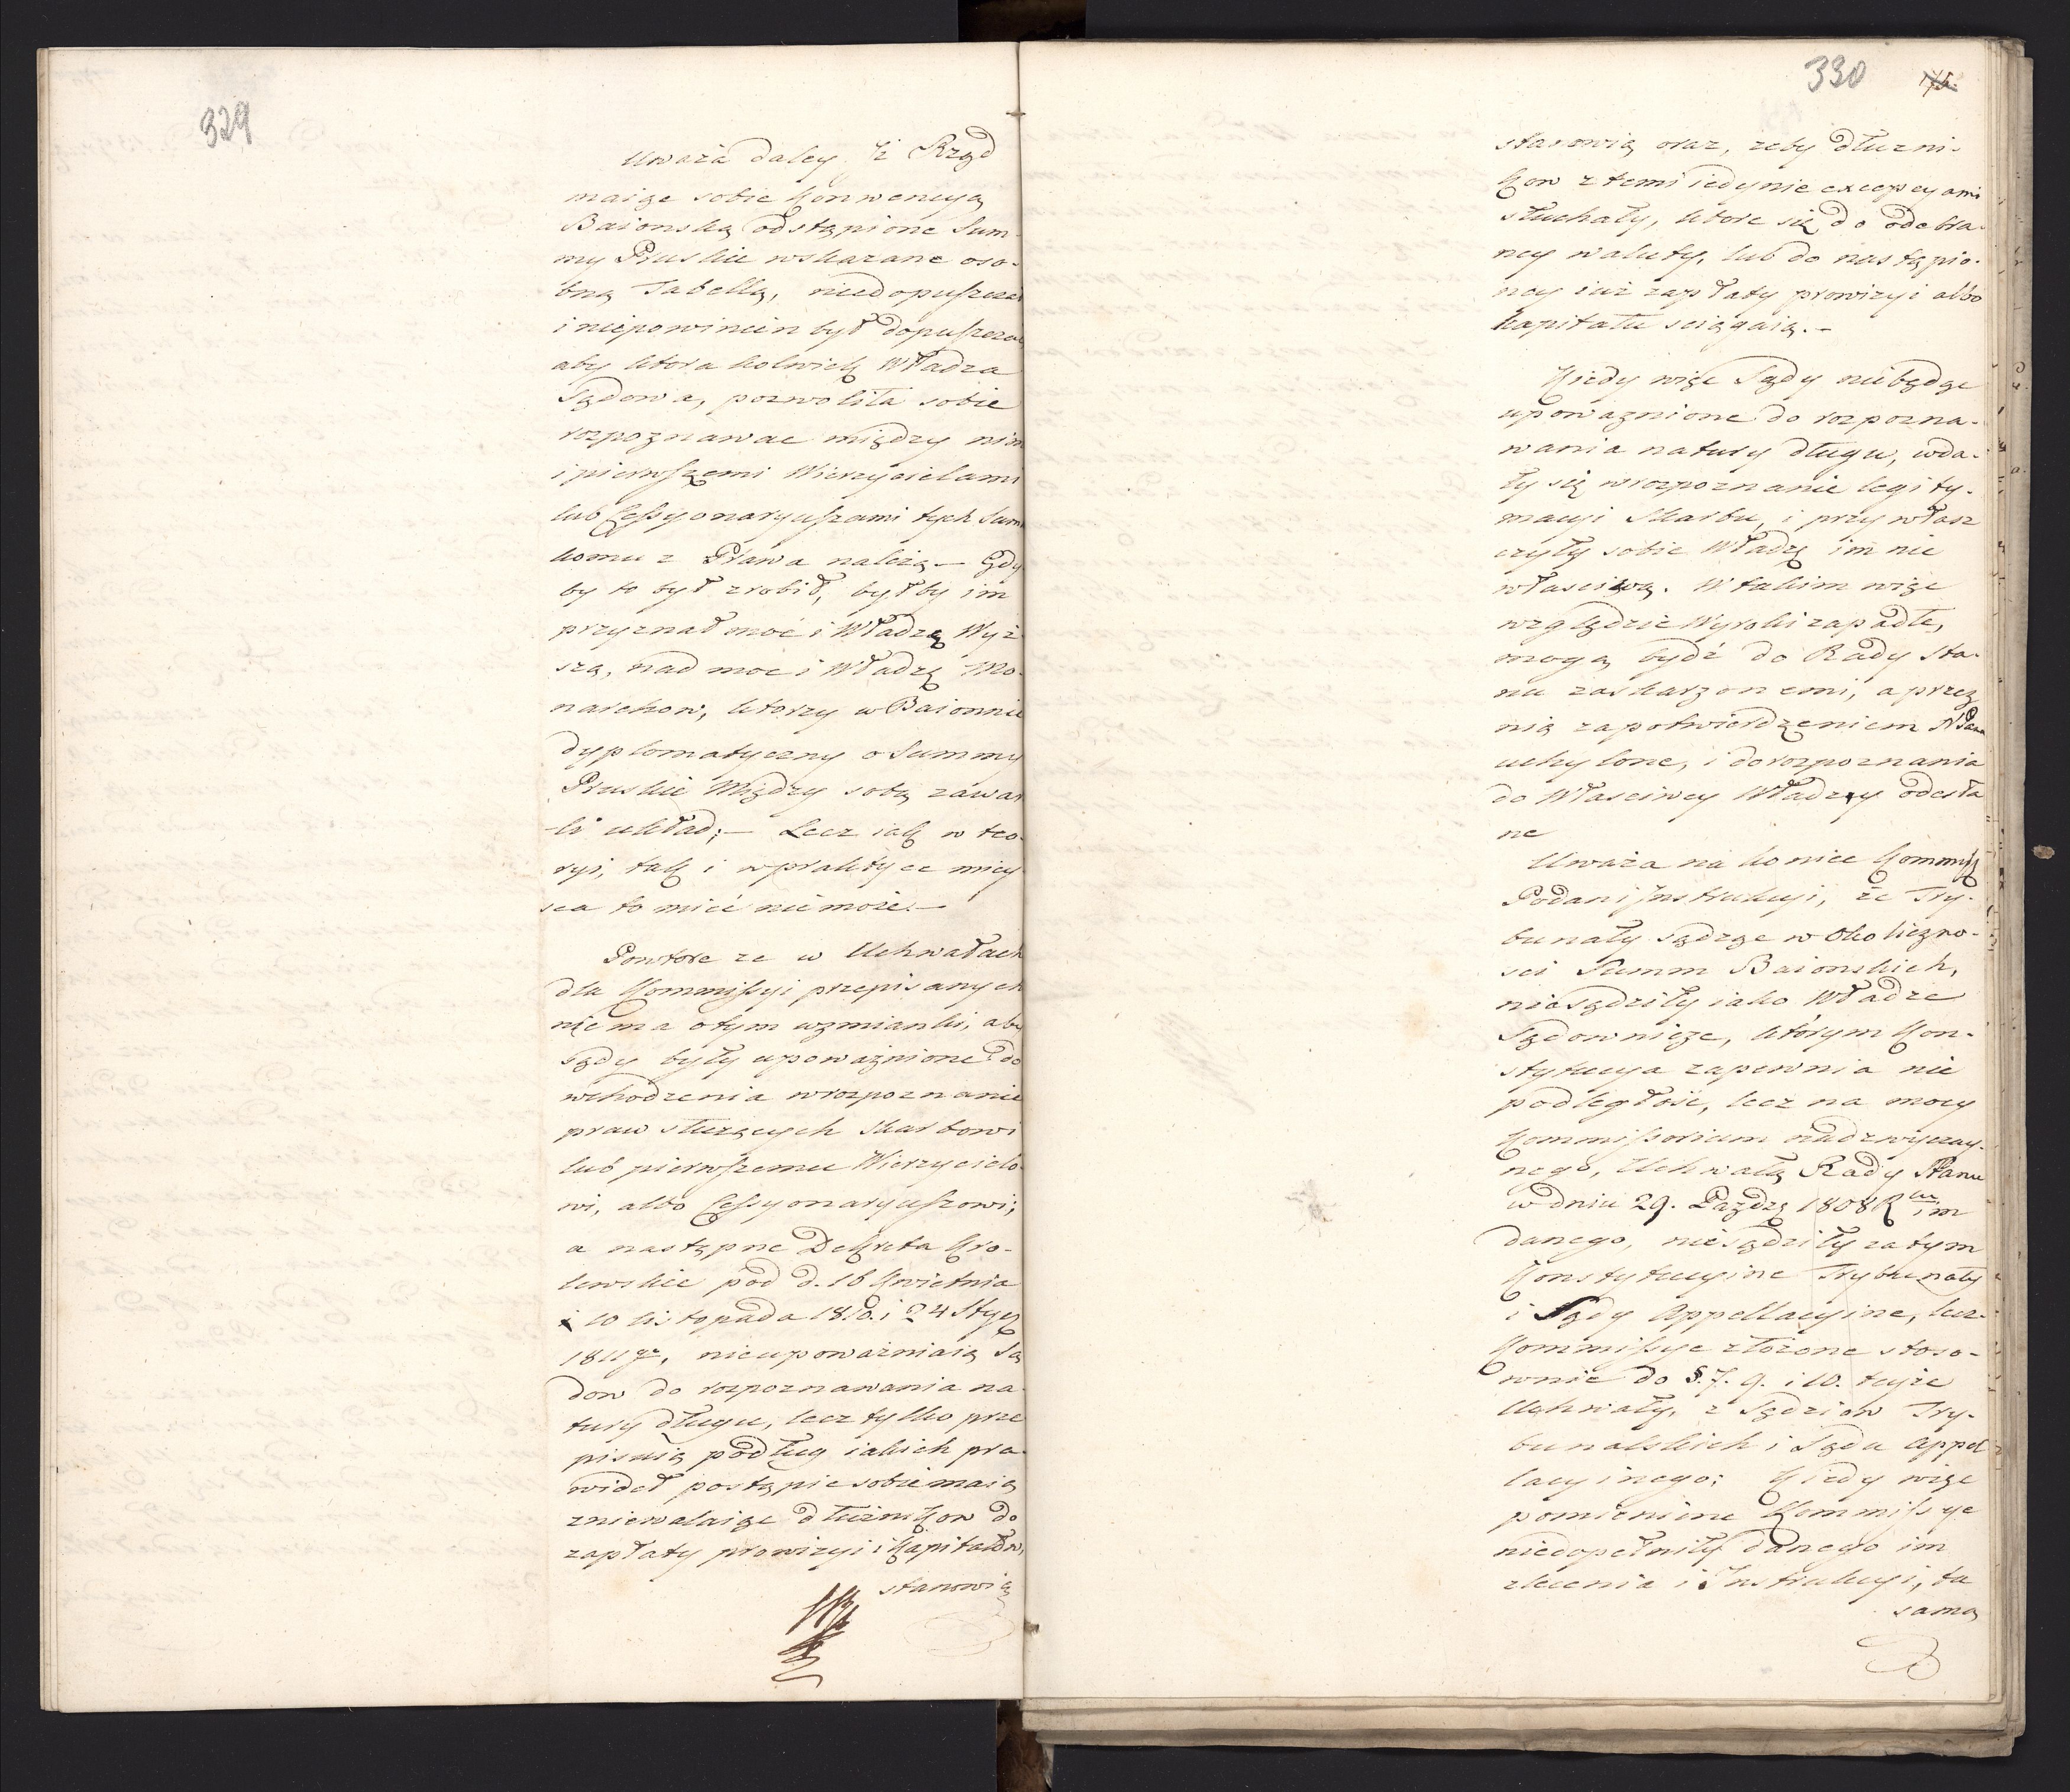 329
Uważa daley iż Rząd
maiąc sobie Konwencyą
Baionską odstąpione Sum-
my Pruskie wskazane oso-
bną Tabellą, niedopuszczał
i niepowinien był dopuszczać
aby ktora kolwiek Władza
Sądowa, pozwoliła sobie
rozpoznawac między nim
i pierwszemi Wierzycielami
lub Cessyonaryuszami tych Summ
komu z Prawa należą – Gdy
by to był zrobił, byłby im
przyznał moć i Władzę Wyż-
szą, nad moc i Władzę Mo-
narchow, ktorzy w Baionnie
dyplomatyczny o Summy
Pruskie Między sobą zawar
li układ; – Lecz iak w teo-
ryi, tak i w praktyce miey
sca to mieć niemoże. –
Powtore ze w Uchwałach
dla Kommissyi przepisanych
niema otym wzmianki, aby
Sądy były upoważnione do
wchodzenia w rozpoznanie
praw służących Skarbowi
lub pierwszemu Wierzycielo-
wi, albo Cessyonaryuszowi;
a następne Dekreta Kro-
lewskie pod d. 16 Kwietnia
i 10 listopada 1810. i 24 Stycz
1811 , nieupoważniaią Są
dow do rozpoznawania na-
tury długu, lecz tylko prze
pisuią podług iakich pra-
wideł postąpic sobie maią
zniewalaiąc dłużnikow do
zapłaty prowizyi i Kapitałow,
stanowią
330
175.
stanowią oraz, zeby dłuzni-
kow z temi iedynie excepcyami
słuchały, ktore się do odebra-
ney waluty, lub do nastąpio-
ney iuż zapłaty prowizyi albo
kapitału sciągaią. –
Kiedy więc Sądy niebędąc
upowaznione do rozpozna-
wania natury długu, wda-
ły się w rozpoznanie legity-
macyi Skarbu, i przywłasz
czyły sobie Władzę im nie
własciwą. W takim więc
względzie Wyroki zapadłe,
mogą bydź do Rady Sta-
nu zaskarzonemi, a przez
nią za potwierdzeniem N Pana
uchylone, i do rozpoznania
do Własciwey Władzy odesła
ne
Uważa na koniec Kommiss
Podani Instrukcyi, że Try-
bunały sądząc w Okoliczno-
sci Summ Baionskich,
niesądziły iako Władze
Sądownicze, którym Kon-
stytucya zapewnia nie
podległość, lecz na mocy
Kommissorium nadzwyczay-
nego, Uchwałą Rady Stanu
w dniu 29. Pazdz 1808 R im
danego, niesądziły za tym
Konstytucyine Trybunały
i Sądy Appellacyine, lecz
Kommissye złożone stoso-
wnie do §. 7. 9. i 10. teyże
Uchwały, z Sędziow Try-
bunalskich i Sądu Appel
lacyinego; Kiedy więc
pomienione Kommissye
niedopełniły danego im
zlecenia i Instrukcyi, ta
sama